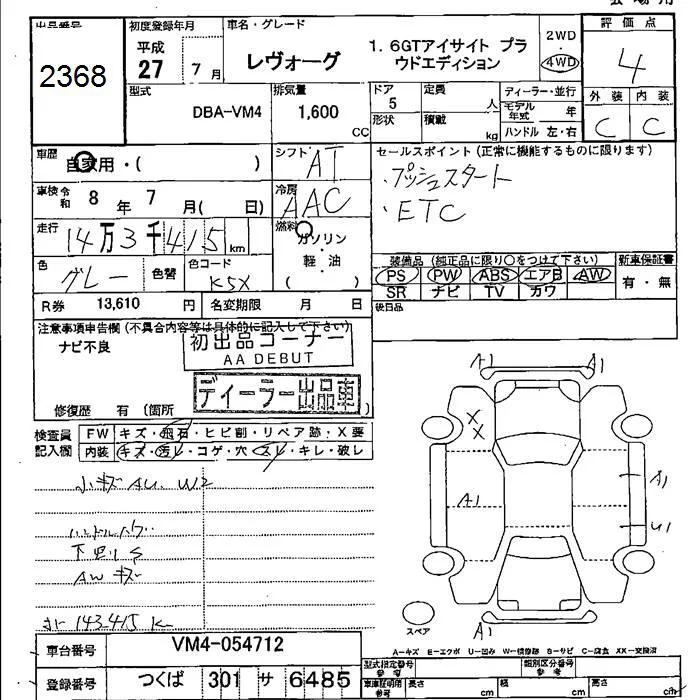 出品番号
2368
初度登録年月
平成
27 7月
車名・グレード
レヴォーグ
1.6GTアイサイト プラ
ウドエディション
2WD
・
4WD
評価点
4
外装 内装
C C
型式
DBA-VM4
排気量
1,600
CC
ドア
5
形状
定員
人
積載
kg
ディーラー・並行
モデル
年式 年
ハンドル 左・右
車歴
自家用・( )
シフト
AT
セールスポイント(正常に機能するものに限ります)
・プッシュスタート
・ETC
車検 令和 8年 7月( 日)
冷房
AAC
走行
14万3千415km
燃料
ガソリン
・
軽・油
( )
色
グレー
色替
色コード
K5X
装備品(純正品に限り○をつけて下さい)
PS PW ABS エアB AW
SR ナビ TV カワ
新車保証書
有・無
R券 13,610 円
名変期限 月 日
後日品
注意事項申告欄(不具合内容等は具体的に記入して下さい)
ナビ不良
初出品コーナー
AA DEBUT
ディーラー出品車
修復歴 有 (箇所 )
検査員
記入欄
FW キズ・飛石・ヒビ割・リペア跡・X要
内装 キズ・汚レ・コゲ・穴・スレ・キレ・破レ
小キズ AU. U2
下回りS
AWキズ
143415K
A1
A1
X
X
A1
A1
U1
A1
スペア
A-キズ E-エクボ U-凹み W-補修跡 S-サビ C-腐食 XX-交換済
車台番号 VM4-054712
登録番号 つくば 301 サ 6485
型式指定番号
参考
類別区分番号
参考
車庫証明用
参考
長さ cm
幅 cm
高さ cm